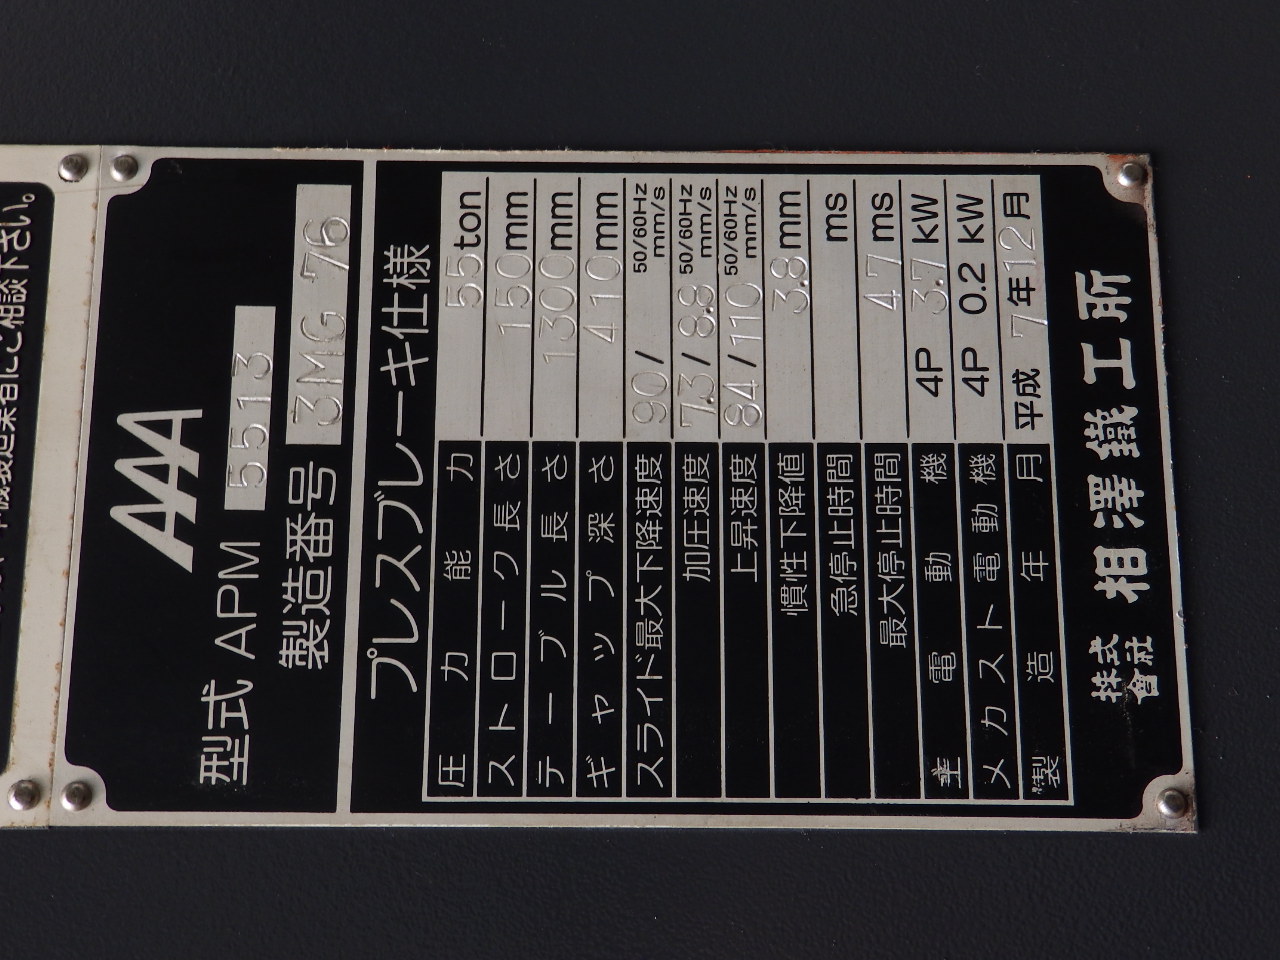 AAA
型式 APM 5513
製造番号 3MG 76
プレスブレーキ仕様
圧力能力 55 ton
ストローク長さ 150 mm
テーブル長さ 1300 mm
ギャップ深さ 410 mm
スライド最大下降速度 90 / 50/60Hz mm/s
加圧速度 7.3 / 8.8 50/60Hz mm/s
上昇速度 84 / 110 50/60Hz mm/s
慣性下降値 3.8 mm
急停止時間 ms
最大停止時間 47 ms
主電動機 4P 3.7 kW
メカスト電動機 4P 0.2 kW
製造年月 平成 7年12月
株式會社 相澤鐵工所
談下さい。